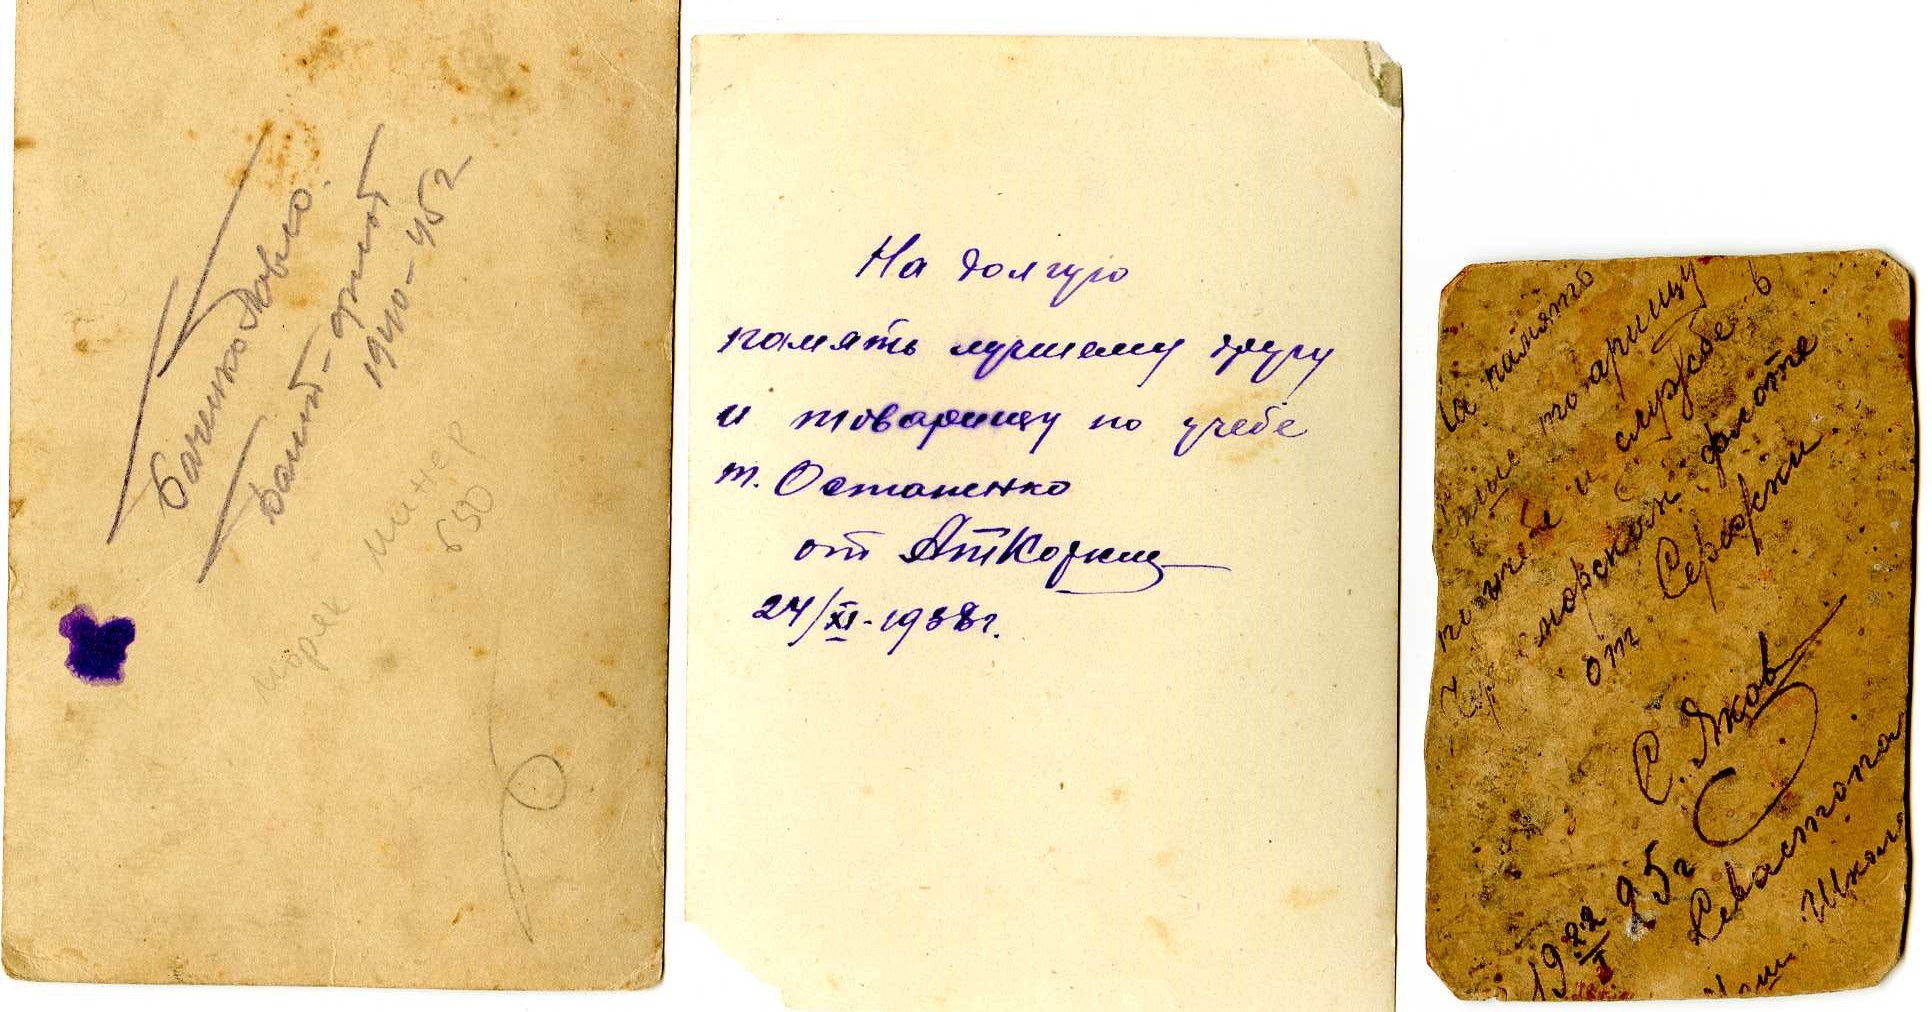 Баченко Павло.
Балт-флот
1940-45г
моряк минер
БЧО
На долгую
память лучшему другу
и товарищу по учебе
т. Остапенко
от
24/XI-1938г.
На память
товарищу
по учебе и службе в
морском флоте
от Сережки
С. Яков
1922/I 25г
Севастопол
Школ